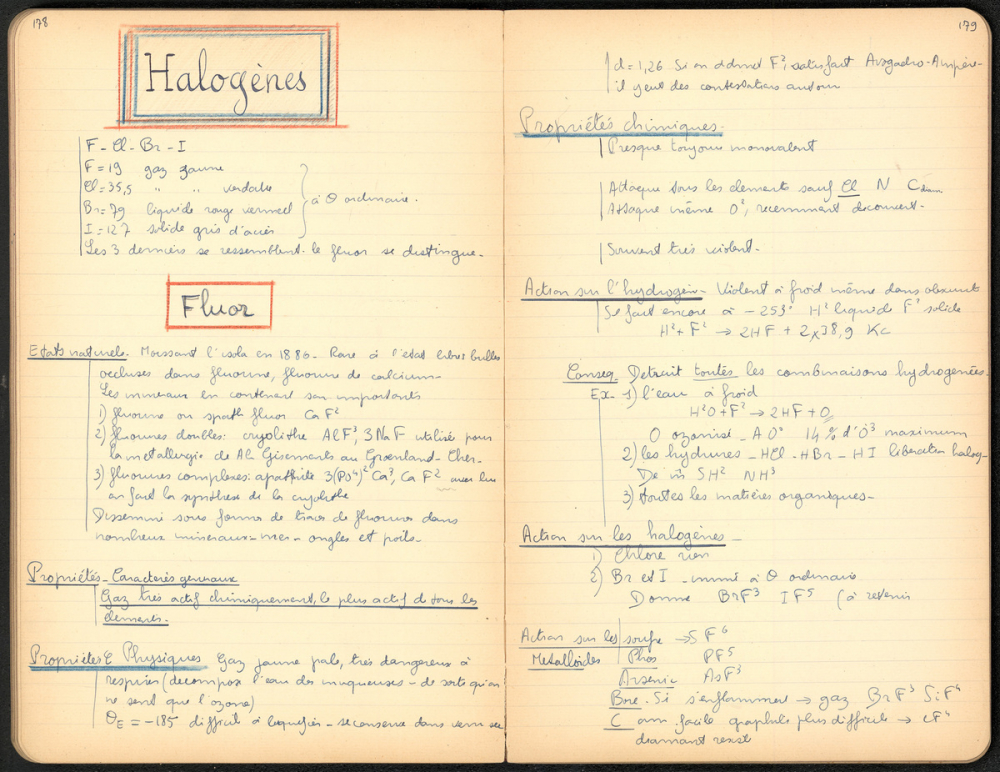 178
Halogènes
F - Cl - Br - I
F = 19 gaz jaune
Cl = 35,5 " " verdatre
Br = 79 liquide rouge vermeil
I = 127 solide gris d'acier
à θ ordinaire.
Les 3 derniers se ressemblent. le fluor se distingue.
Fluor
Etats naturels. Moissant l'isola en 1886 - Rare à l'état libre bulles
occluses dans fluorine, fluorure de calcium -
Les minéraux en contenant sont importants
1) fluorine ou spath fluor Ca F²
2) fluorures doubles: cryolithe AlF³, 3NaF utilisé pour
la metallurgie de Al Gisements au Groenland - Cher -
3) fluorures complexes: apathite 3(PO⁴)² Ca³, Ca F² avec lui
on fait la synthèse de la cryolithe
Disseminé sous forme de traces de fluorures dans
nombreux mineraux - mer - ongles et poils -
Propriétés - Caractères généraux
Gaz très actif chimiquement, le plus actif de tous les
elements -
Propriétés Physiques Gaz jaune pale, très dangereux à
respirer (decompose l'eau des muqueuses - de sorte qu'on
ne sent que l'ozone)
θE = -185 difficile à liquefier - se conserve dans verre sec
179
d = 1,26. Si on admet F², satisfait Avogadro-Ampère -
il y eut des contestations autour
Propriétés chimiques.
Presque toujours monovalent
Attaque tous les elements sauf Cl N C diam
Attaque même O², recemment decouvert -
Souvent très violent -
Action sur l'hydrogène - Violent à froid même dans obscurité
Se fait encore à -253° H² liquide F² solide
H² + F² → 2HF + 2x38,9 Kc
Conseq. Detruit toutes les combinaisons hydrogenées.
Ex - 1) l'eau à froid
H²O + F² → 2HF + O
O ozonisé - A 0° 14 % d'O³ maximum
2) les hydrures - HCl - HBr - HI libération halog -
De m̂ SH² NH³
3) toutes les matières organiques -
Action sur les halogènes -
1) Chlore rien
2) Br et I - immé à θ ordinaire
Donne BrF³ IF⁵ (à retenir
Action sur les
Metalloïdes
soufre → S F⁶
Phos PF⁵
Arsenic AsF³
Bore. Si s'enflamment → gaz BrF³ SiF⁴
C am. facile graphite plus difficile → CF⁴
diamant resist